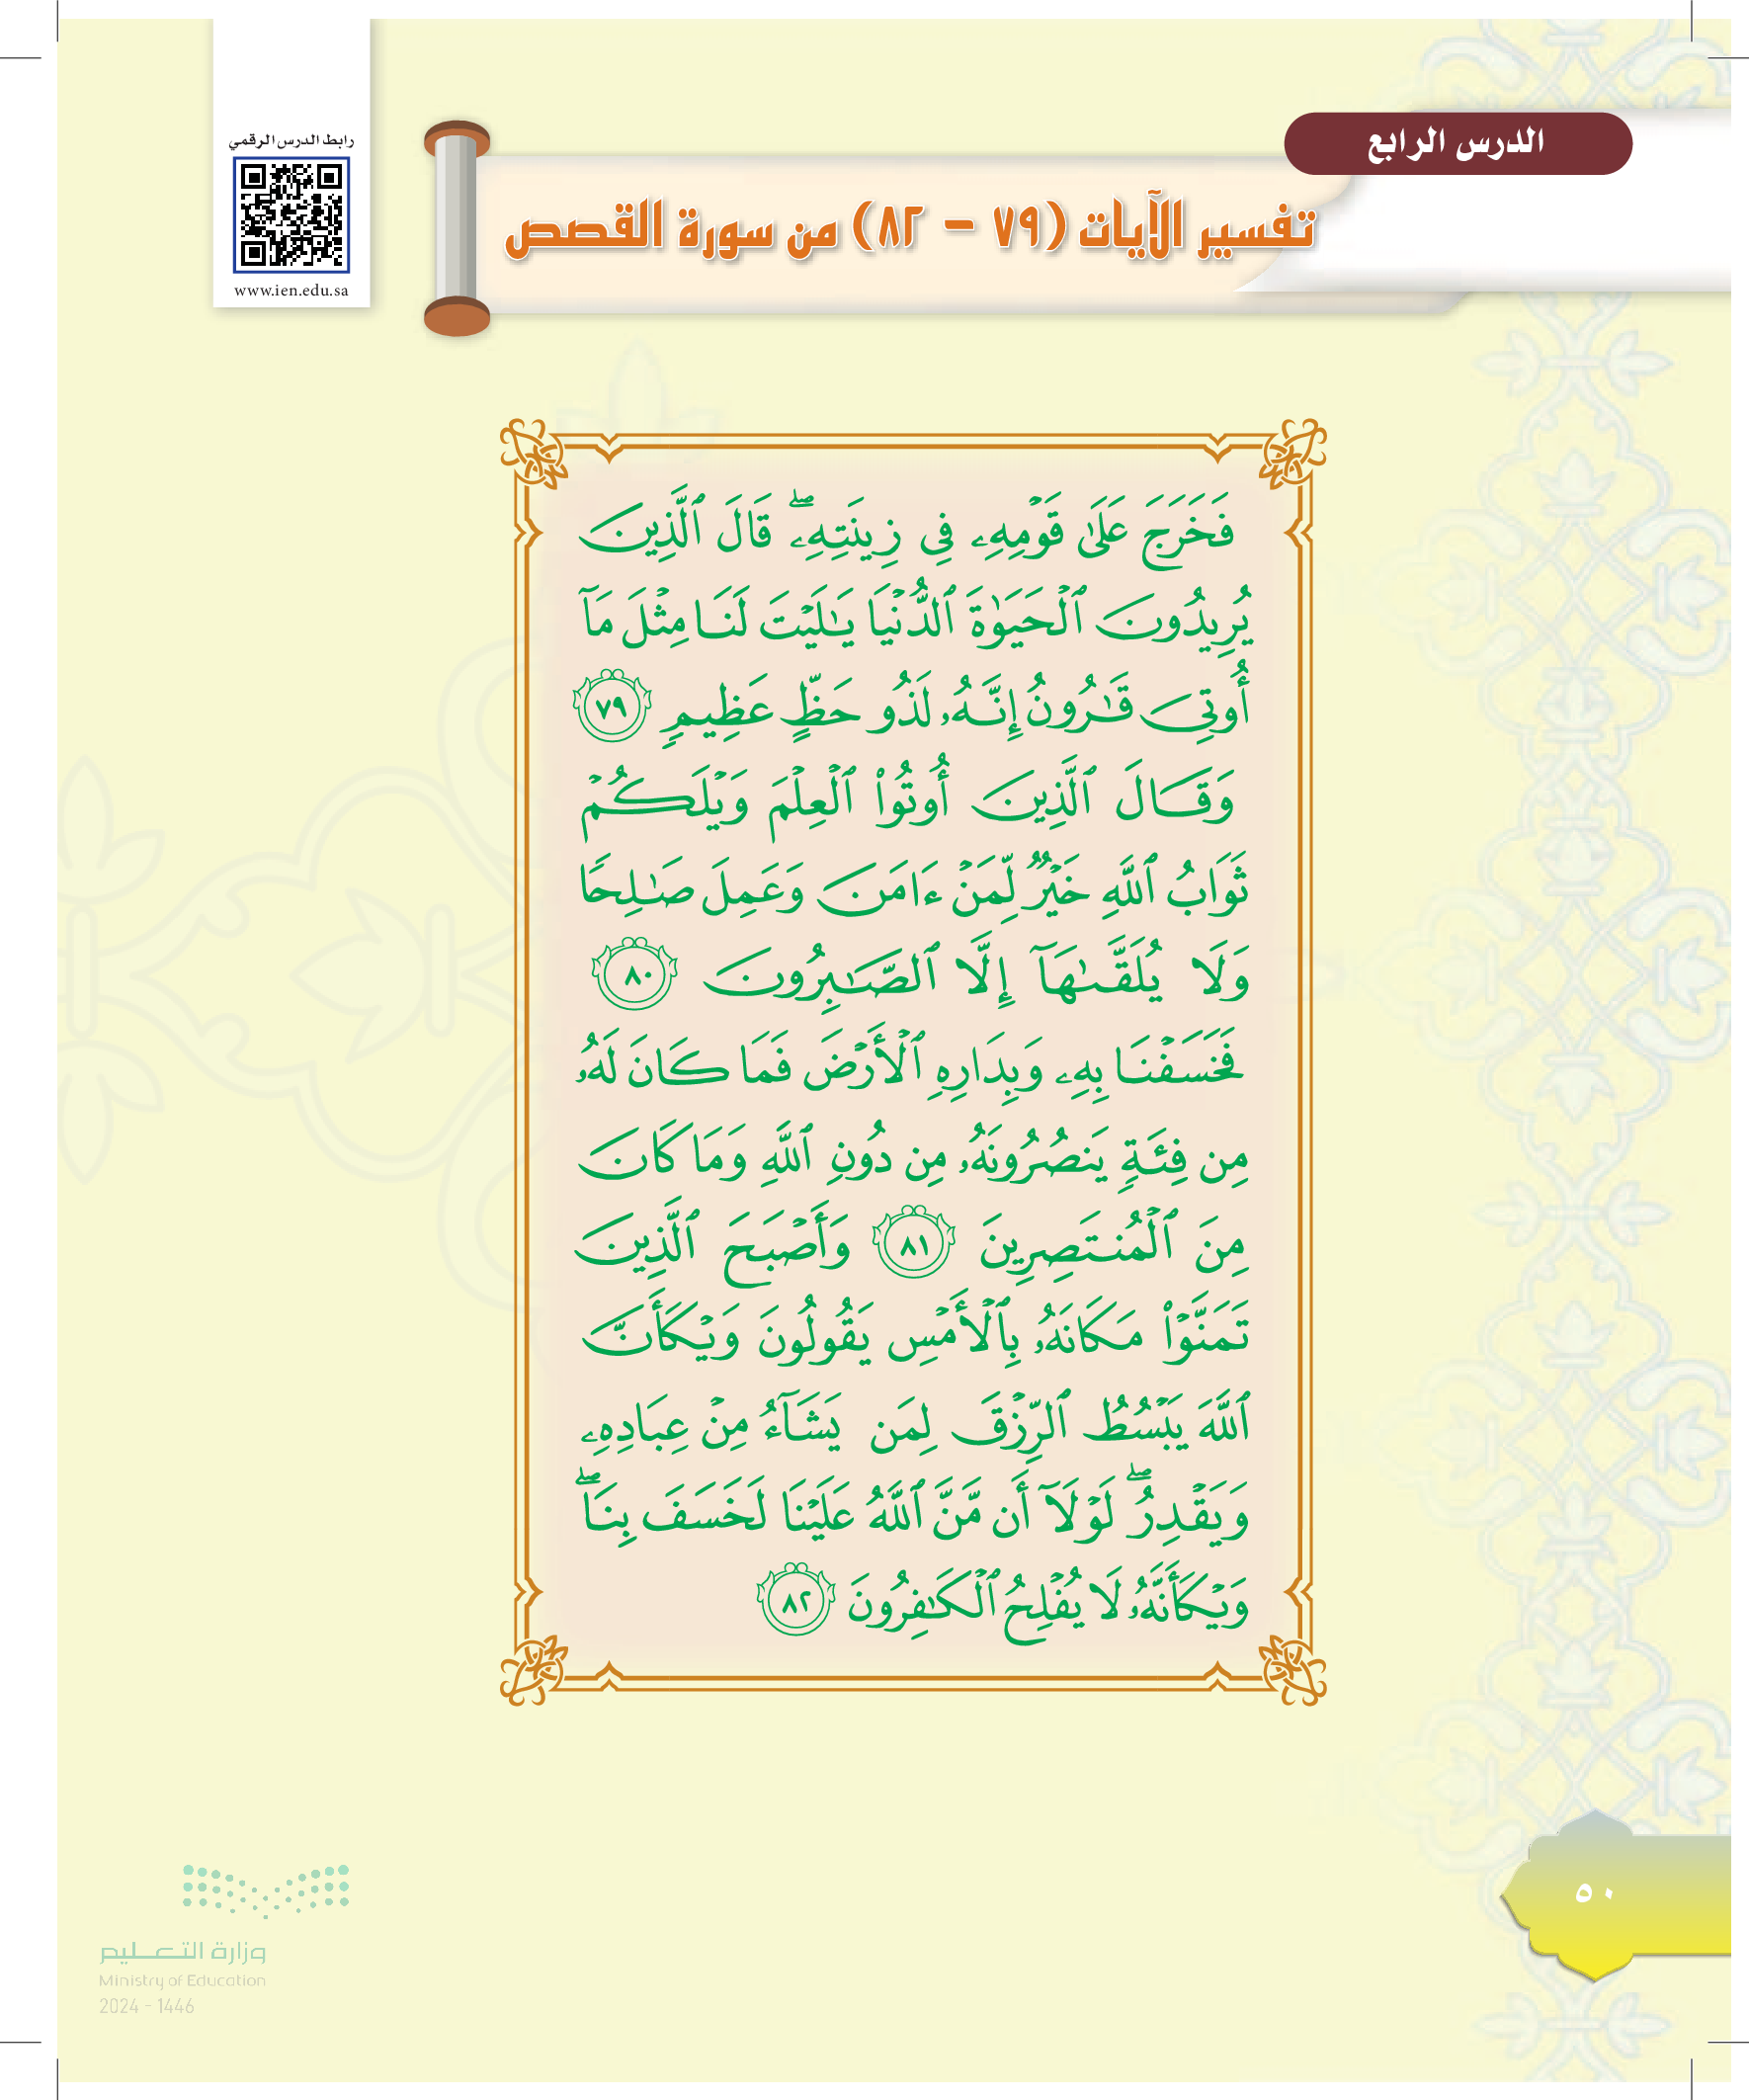 الدرس الرابع
رابط الدرس الرقمي
www.ien.edu.sa
تفسير الآيات (٧٩ - ٨٢) من سورة القصص
فَخَرَجَ عَلَىٰ قَوْمِهِۦ فِى زِينَتِهِۦۖ قَالَ ٱلَّذِينَ
يُرِيدُونَ ٱلْحَيَوٰةَ ٱلدُّنْيَا يَٰلَيْتَ لَنَا مِثْلَ مَآ
أُوتِىَ قَٰرُونُ إِنَّهُۥ لَذُو حَظٍّ عَظِيمٍ ٧٩
وَقَالَ ٱلَّذِينَ أُوتُوا۟ ٱلْعِلْمَ وَيْلَكُمْ
ثَوَابُ ٱللَّهِ خَيْرٌ لِّمَنْ ءَامَنَ وَعَمِلَ صَٰلِحًا
وَلَا يُلَقَّىٰهَآ إِلَّا ٱلصَّٰبِرُونَ ٨٠
فَخَسَفْنَا بِهِۦ وَبِدَارِهِ ٱلْأَرْضَ فَمَا كَانَ لَهُۥ
مِن فِئَةٍ يَنصُرُونَهُۥ مِن دُونِ ٱللَّهِ وَمَا كَانَ
مِنَ ٱلْمُنتَصِرِينَ ٨١ وَأَصْبَحَ ٱلَّذِينَ
تَمَنَّوْا۟ مَكَانَهُۥ بِٱلْأَمْسِ يَقُولُونَ وَيْكَأَنَّ
ٱللَّهَ يَبْسُطُ ٱلرِّزْقَ لِمَن يَشَآءُ مِنْ عِبَادِهِۦ
وَيَقْدِرُۖ لَوْلَآ أَن مَّنَّ ٱللَّهُ عَلَيْنَا لَخَسَفَ بِنَاۖ
وَيْكَأَنَّهُۥ لَا يُفْلِحُ ٱلْكَٰفِرُونَ ٨٢
٥٠
وزارة التعليم
Ministry of Education
2024 - 1446